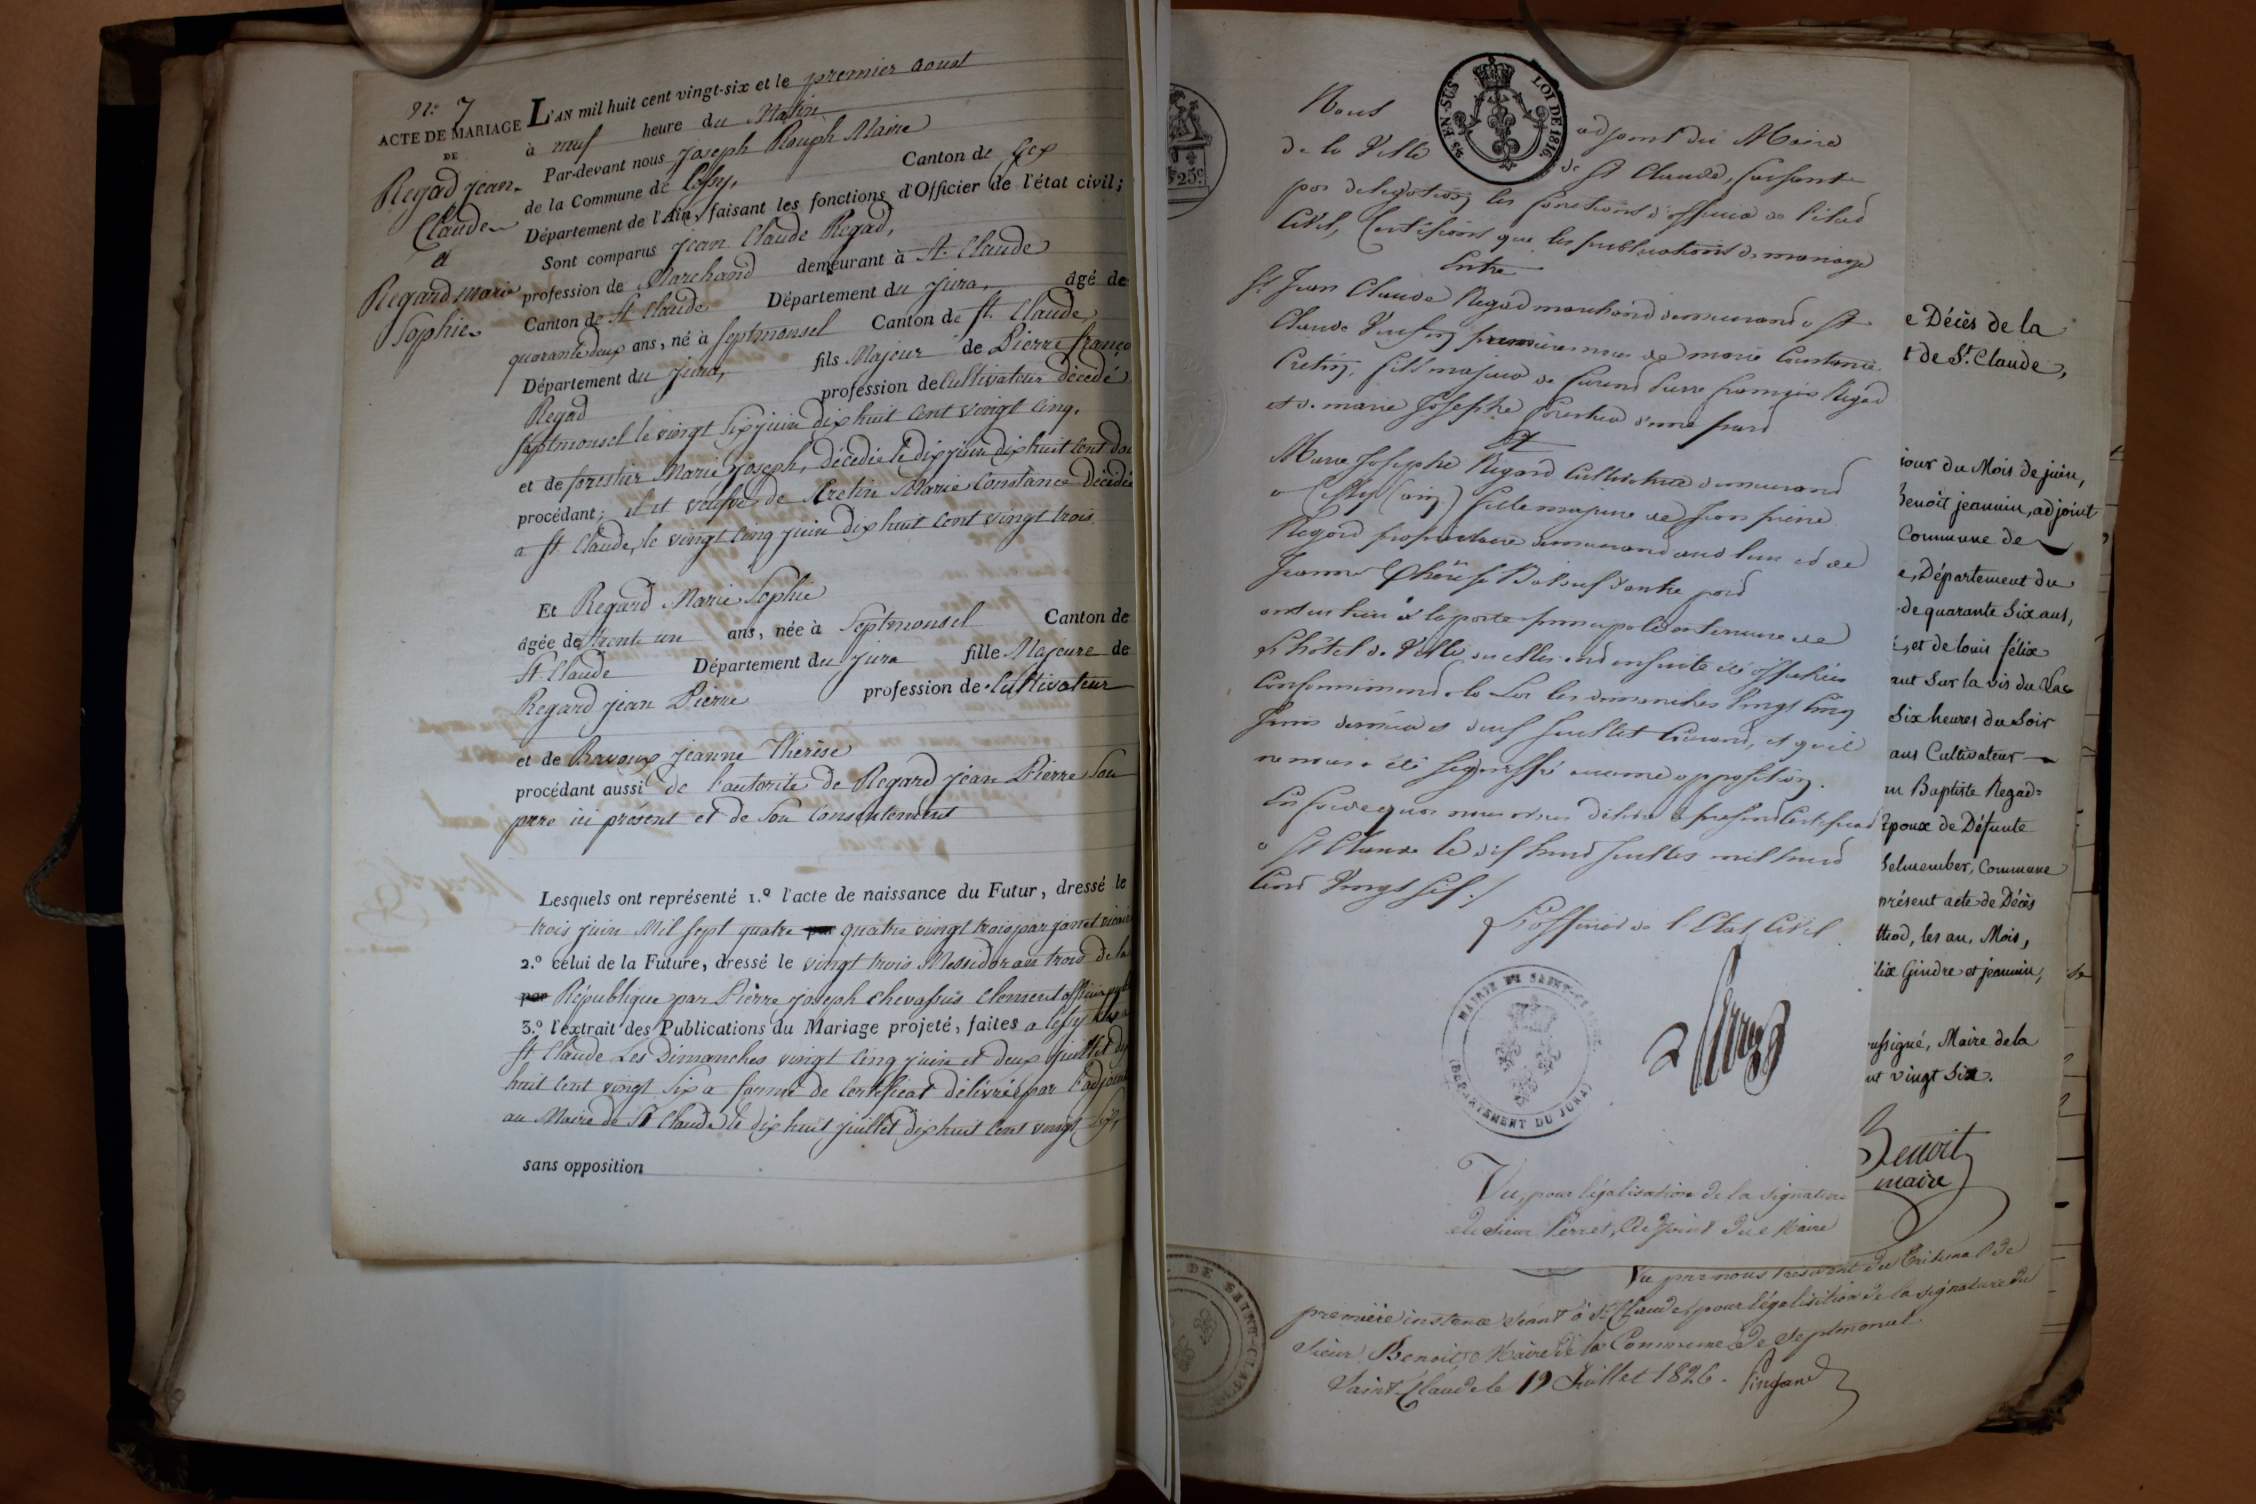 N.° 7
ACTE DE MARIAGE
DE
Regad jean
Claude
et
Regard marie
Sophie
L'AN mil huit cent vingt-six et le premier aoust
à neuf heure du Matin
Par-devant nous joseph Rouph Maire
de la Commune de Lessy, Canton de Gex
Département de l'Ain, faisant les fonctions d'Officier de l'état civil;
Sont comparus jean Claude Regad,
profession de Marchand demeurant à St. Claude
Canton de St Claude Département du jura, âgé de
quarante deux ans, né à Septmonsel Canton de St. Claude
Département du jura, fils Majeur de Pierre franço
Regad profession de Cultivateur décedé
Septmonsel le vingt Six juin dix huit Cent vingt cinq.
et de forestier Marie Joseph, décedée le dix juin dix huit Cent dou
procédant; il est veufve de Cretin Marie Constance Décédée
a St. Claude, le vingt Cinq juin dix huit Cent vingt trois
Et Regard Marie Sophie
âgée de trente un ans, née à Septmonsel Canton de
St. Claude Département du jura fille Majeure de
Regard jean Pierre profession de Cultivateur
et de Bavoux jeanne Thérèse
procédant aussi de l'autorité de Regard jean Pierre Son
pere ici présent et de Son Consentement
Lesquels ont représenté 1.° l'acte de naissance du Futur, dressé le
trois juin Mil Sept quatre par quatre vingt trois par janet vicaire
2.° celui de la Future, dressé le vingt trois Messidor an trois de la
par République par Pierre joseph Chevassus Clement officier
3.° l'extrait des Publications du Mariage projeté, faites a Lessy
St Claude Les Dimanches vingt cinq juin et deux juillet dix
huit Cent vingt Six a forme de Certificat délivré par l'adjoint
au Maire de St Claude le dix huit juillet dix huit Cent vingt Six,
sans opposition
25 EN SUS LOI DE 1816.
25c
Nous adjoint du Maire
de la Ville de St Claude, faisant
par delegation les fonctions d'officier de l'etat
Civil, Certifions que les publications de mariage
Entre
Sr Jean Claude Regad marchand demeurant a St
Claude Veuf en premieres noces de marie Constance
Cretin, fils majeur de furent Pierre françois Regad
et de marie Josephe forestier d'une part
Et
Marie Josephe Regard Cultivatrice demeurant
a Lessy (ain) fille majeure de Jean pierre
Regard propriétaire demeurant aud. lieu et de
Jeanne Thérèse Bavoux d'autre part
ont eu lieu à la porte principale exterieure de
l'hôtel de Ville ou elles ont ensuite été affichées
Conformément à la Loi les dimanches Vingt Cinq
Juin dernier et deux Juillet Courant, et qu'il
ne nous a été signiffié aucune opposition.
En foi de quoi nous avons délivré le present Certificat
a St Claude le dix huit Juillet mil huit
Cent Vingt Six./
L'officier de l'Etat Civil
MAIRIE DE SAINT-CLAUDE
(DEPARTEMENT DU JURA)
Vu, pour légalisation de la signature
du sieur Perret, Adjoint du Maire
e Décès de la
t de St. Claude,
jour du Mois de juin,
Benoît jeannin, adjoint
Commune de
e, Département du
de quarante Six ans,
é, et de louis félix
ant Sur la vis du Lac
Six heures du Soir
ans Cultivateur
an Baptiste Regad=
Epoux de Défunte
Belmember, Commune
présent acte de Décès
ttrod, les an, Mois,
lix Gindre et jeannin,
ussigné, Maire de la
nt vingt Six.
Benoit
maire
DE SAINT-CLAUDE
Vu par nous président du Tribunal de
première instance séant à St. Claude, pour légalisation de la signature du
sieur Benoit, Maire de la Commune de Septmoncel.
Saint-Claude le 19 Juillet 1826.